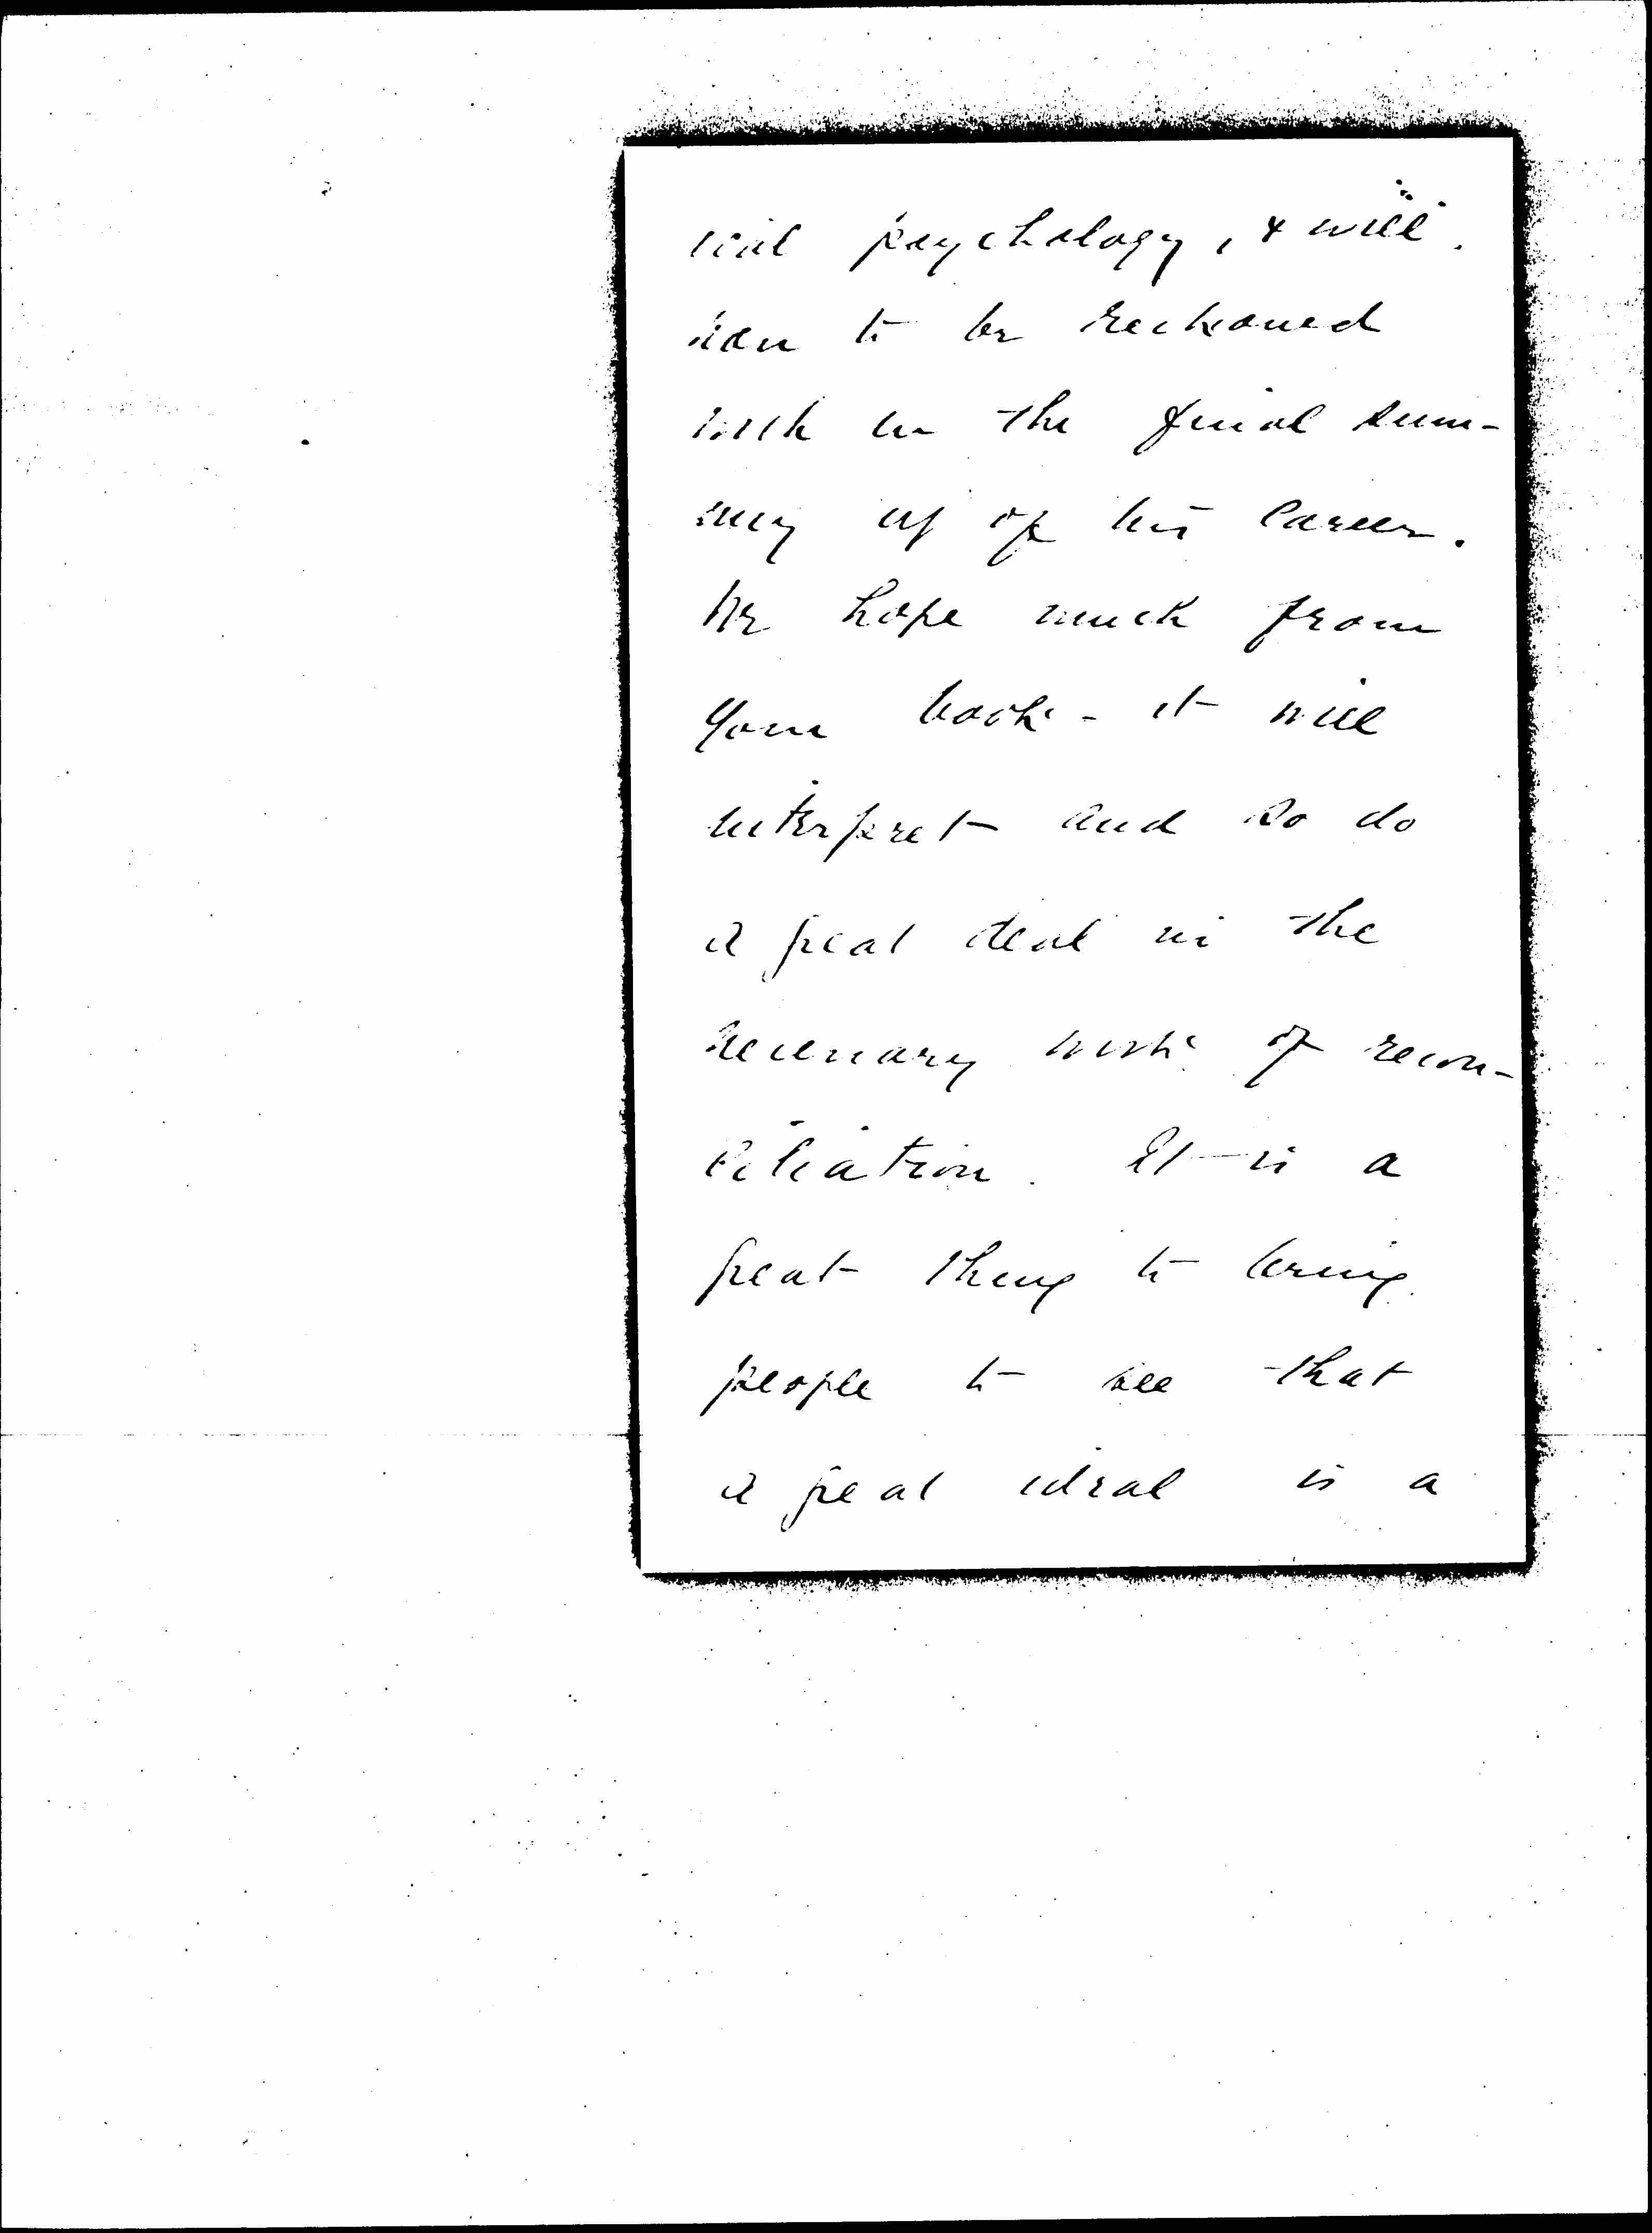 psychology, & will
have to be reckoned
with in the final sum-
ming up of his career.
We hope much from
your book - it will
interpret and so do
a great deal in the
necessary work of recon-
ciliation. It is a
great thing to bring
people to see that
a great ideal is a